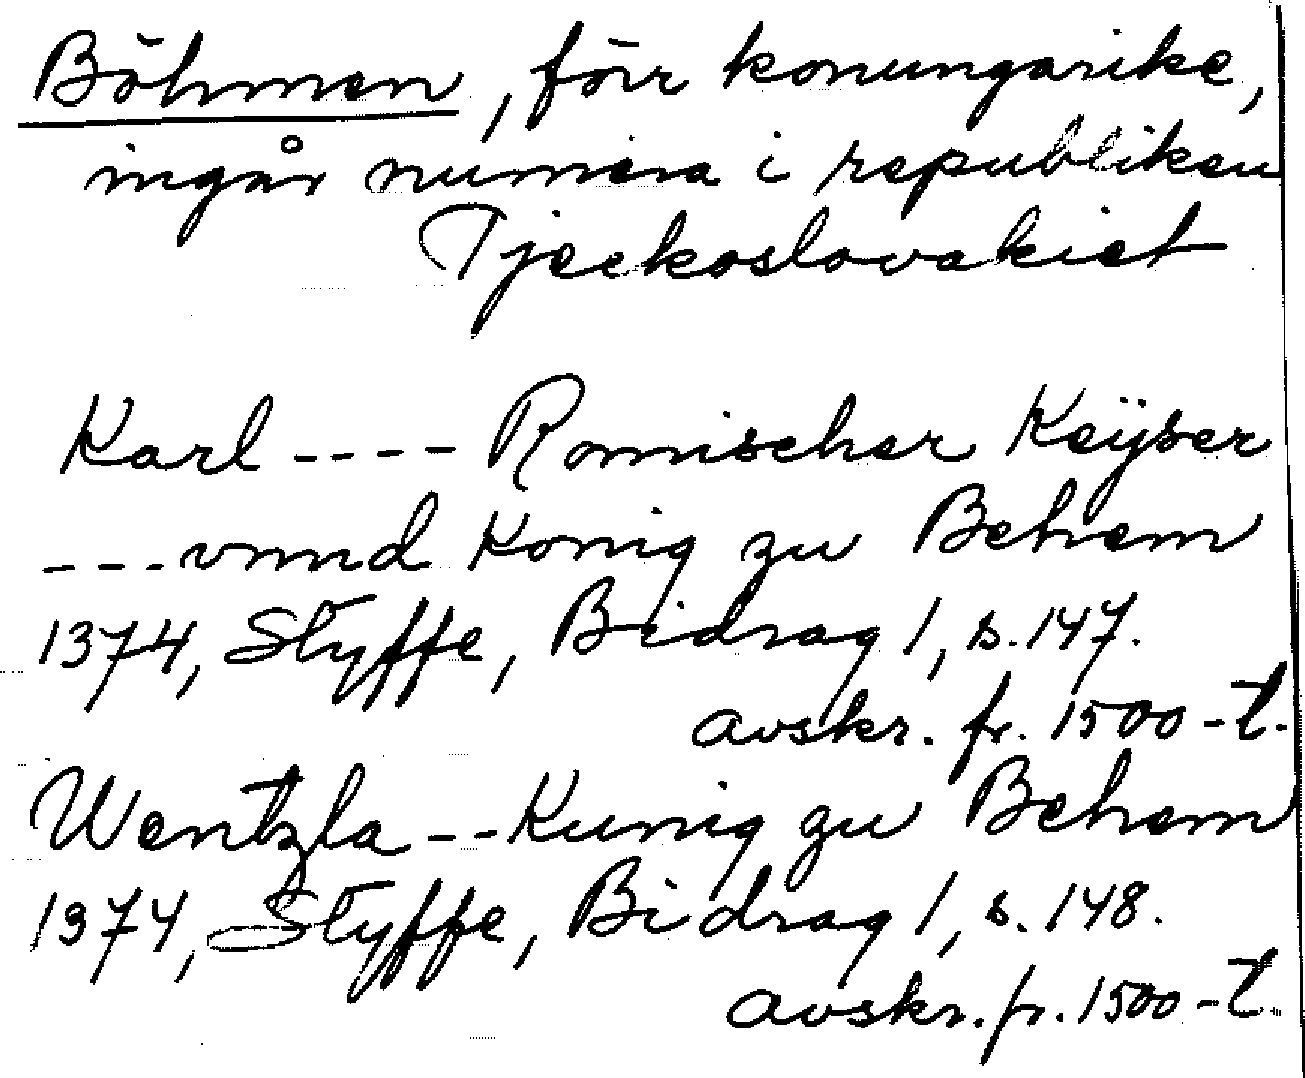 Böhmen, förr konungarike,
ingår numera i republiken
Tjeckoslovakiet
Karl ---- Romischer Keÿser
---vnnd Konig zu Behem
1374, Styffe, Bidrag 1, s. 147.
avskr. fr. 1500-t.
Wentzla -- Kunig zu Behem
1374, Styffe, Bidrag 1, s. 148.
avskr. fr. 1500-t.